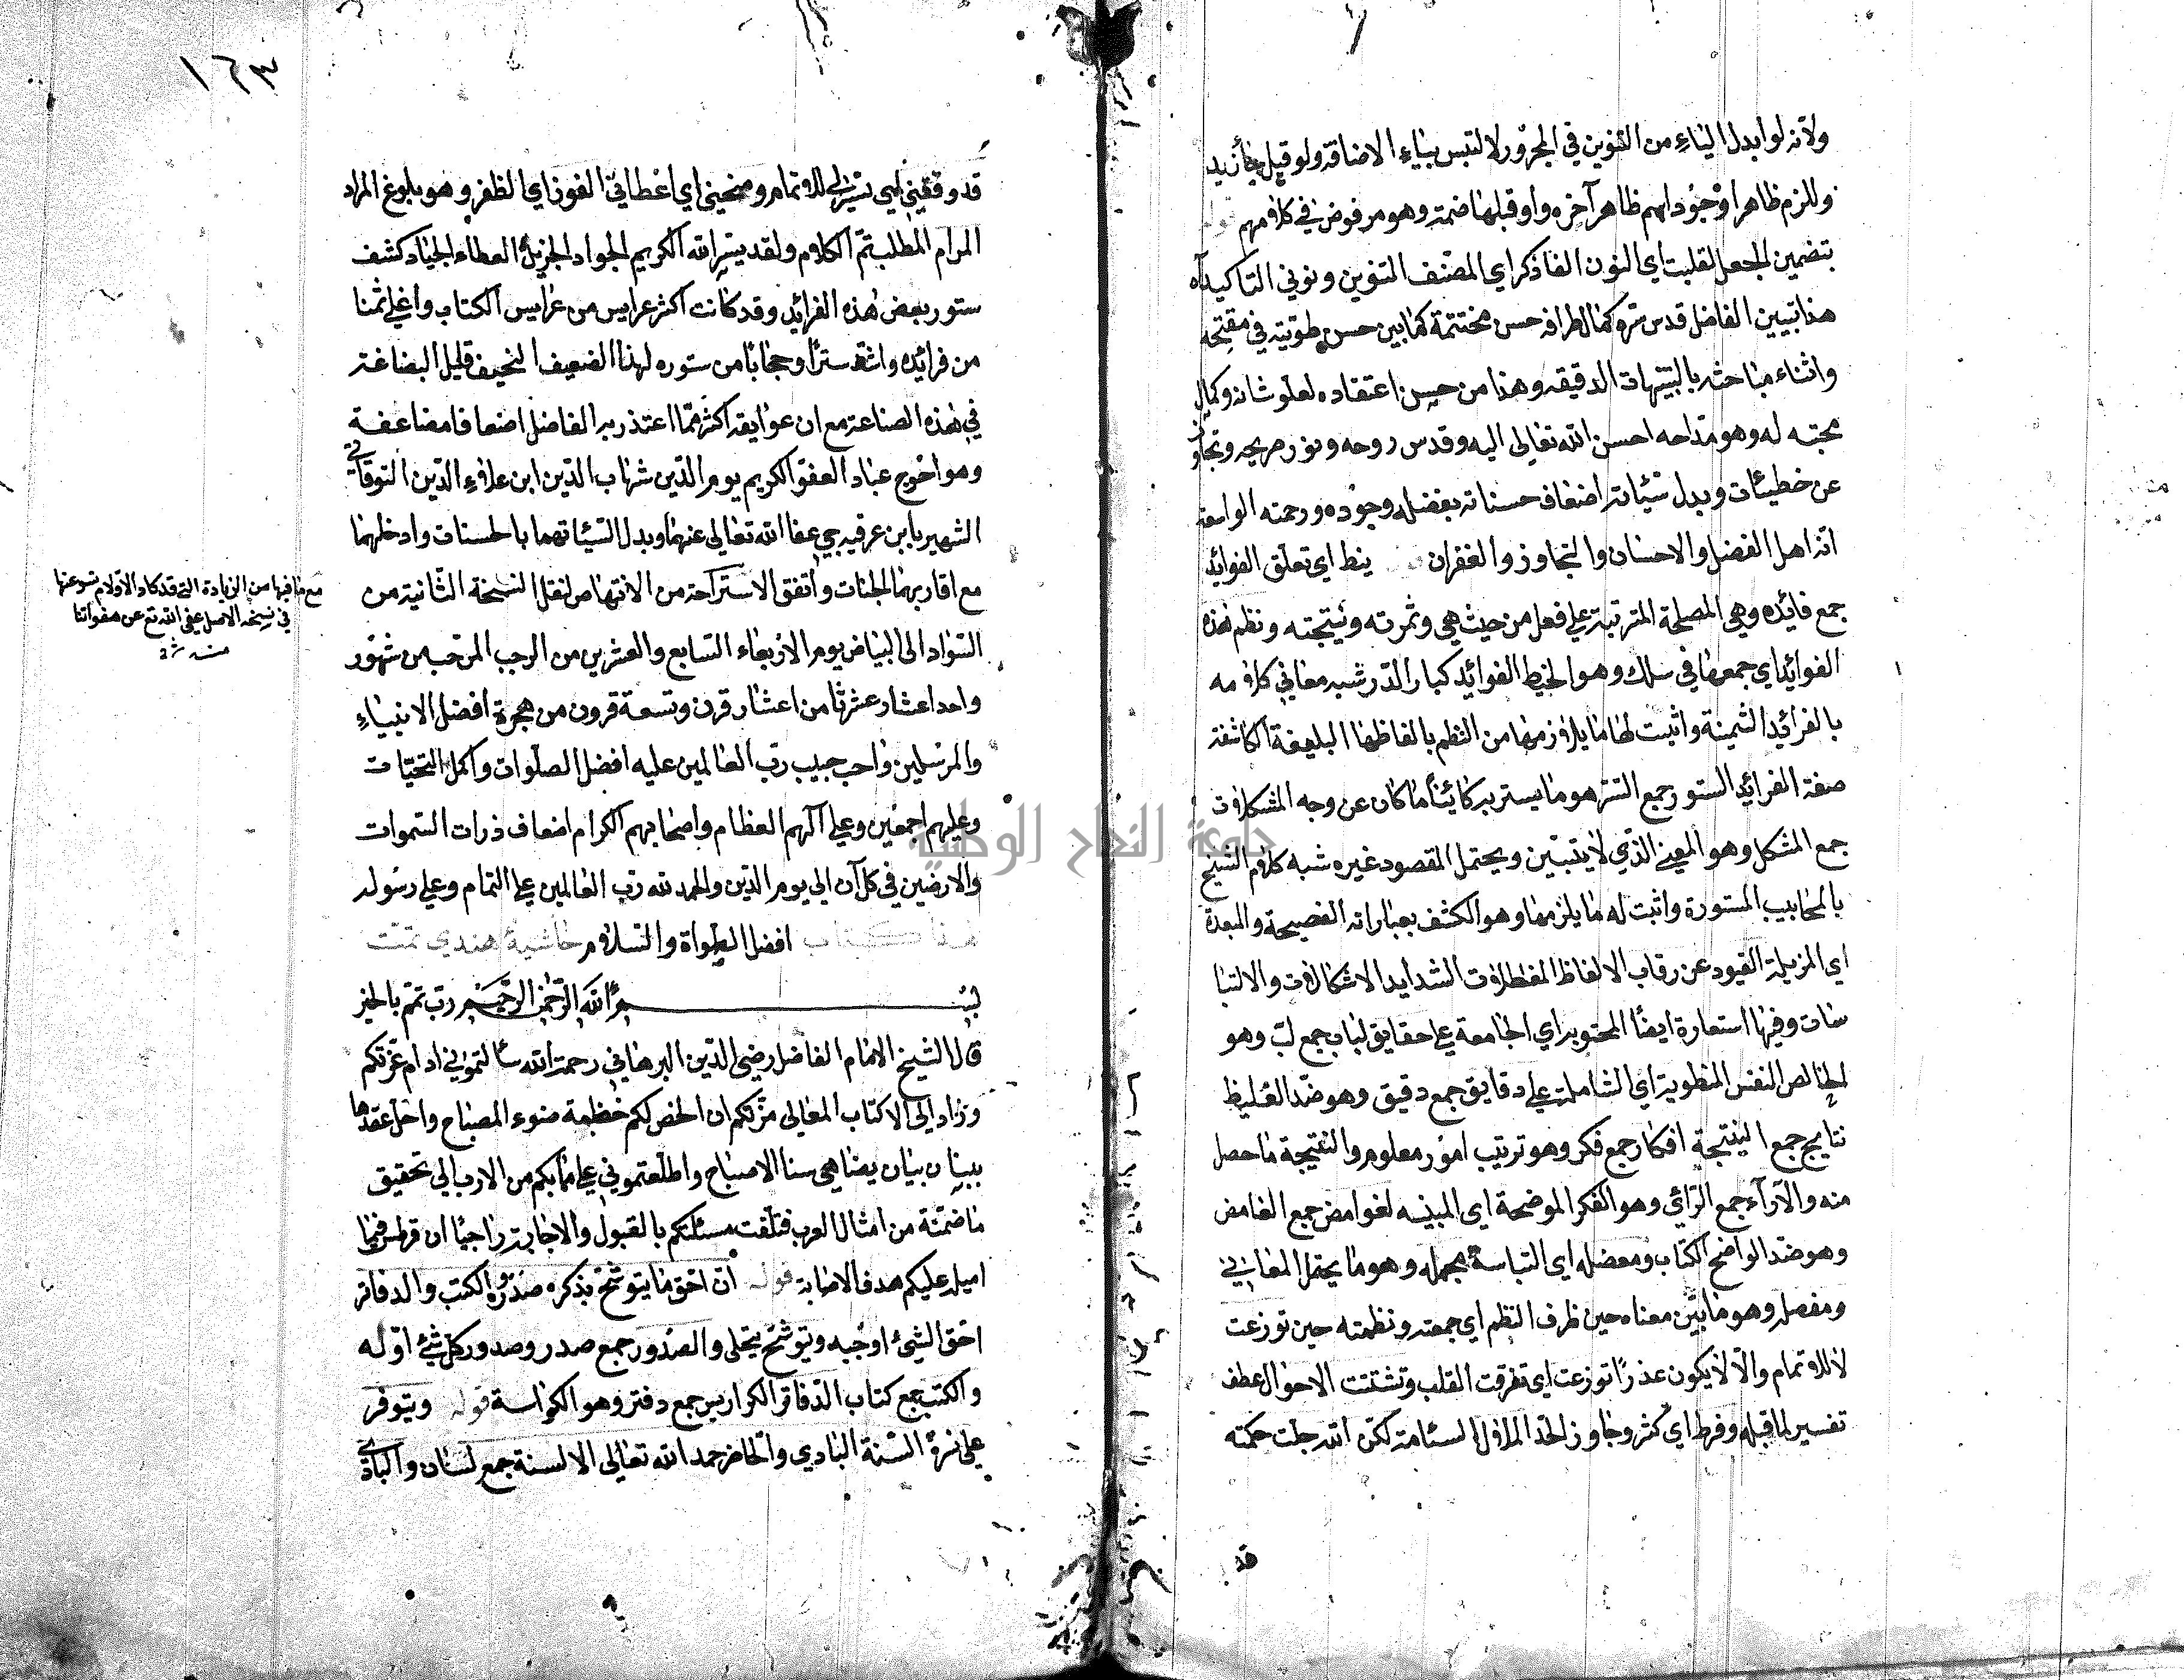 ولانه لو ابدل الياء من التنوين في المجرور لالتبس بياء الاضافة ولو قيل
وللزم ظاهرا وجود اسم ظاهر آخره واو قبلها ضمة وهو مرفوض في كلامهم
بتضمين الجعل لقلبت اي النون الفا ذكر اي المصنف التنوين ونوني التاكيد اه
هذا تبيين الفاضل قدس سره كمال ظرافه حسن مختتمة كما بين حسن طويته في مفتتحه
واثناء مباحثه بالتنبيهات الدقيقه وهذا من حسن اعتقاده لعلو شانه وكمال
محبته له وهو مداحه احسن الله تعالى اليه وقدس روحه ونور ضريحه وتجاوز
عن خطيئات وبدل سيئاته اضعاف حسناته بفضله وجوده ورحمته الواسعه
انه اهل الفضل والاحسان والتجاوز والغفران ينط اي تعلق الفوائد
جمع فائده وهي المصلحة المترتبة على فعل من حيث هي وثمرته ونتيجته ونظم هذه
الفوائد اي جمعها في سلك وهو الخيط الفوائد كبار الدر شبه معاني كلامه
بالفرائد الثمينة واثبت لها ما يلازمها من النظم بالفاظها البليغة الكاشفة
صفة الفرائد الستور جمع الستر هو ما يستر به كائنا ما كان عن وجه المشكلات
جمع المشكل وهو المعنى الذي لا يتبين ويحتمل المقصود غيره شبه كلام الشيخ
بالمحابيب المستورة واثبت له ما يلزمها وهو الكشف بعباراته الفصيحة والمبعدة
اي المزيلة القيود عن رقاب الالفاظ المغطلات الشدايد الاشكالات والالتبا
سات وفيها استعارة ايضا المحتوية اي الجامعة على حقايق لباب جمع لب وهو
الخالص النفس المنطوية اي الشاملة على دقايق جمع دقيق وهو ضد الغليظ
نتايج جمع النتيجة افكار جمع فكر وهو ترتيب امور معلوم والنتيجة ما حصل
منه والآراء جمع الرائي وهو الفكر الموضحة اي المبينه لغوامض جمع الغامض
وهو ضد الواضح الكتاب ومعضله اي التباسة مجمله وهو ما يحتمل المعاني
ومفصله وهو ما بين معناه حين ظرف النظم اي جمعته ونظمته حين توزعت
لا للاتمام والا لا يكون عذرا توزعت اي تفرقت القلب وتشتتت الاحوال عطف
تفسير لما قبله وفرط اي كثر وجاوز الحد الملال السئامة لكن الله جلت حكمته
قد
١٦٣
قد وفقني اي يسر لي للاتمام ومنحني اي اعطاني الفوز اي الظفر وهو بلوغ المراد
المرام المطلب تم الكلام ولقد يسر الله الكريم الجواد الجزيل العطاء الجياد كشف
ستور بعض هذه الفرائد وقد كانت اكثر عرايس من عرايس الكتاب واغلى ثمنا
من فرائده واشد سترا وحجابا من ستوره لهذا الضعيف النحيف قليل البضاعة
في هذه الصناعة مع ان عوايقه اكثر مما اعتذر به الفاضل اضعافا مضاعفة
وهو احوج عباد العفو الكريم يوم الدين شهاب الدين ابن علاء الدين التوقاتي
الشهير بابن عرقيه جي عفا الله تعالى عنهما وبدل السيئاتهما بالحسنات وادخلهما
مع اقاربهما الجنات واتفق الاستراحة من الانتهاض لنقل النسخة الثانية من
السواد الى البياض يوم الاربعاء السابع والعشرين من الرجب المرجب من شهور
واحد اعشار عشر ثامن اعشار قرن وتسعة قرون من هجرة افضل الانبياء
والمرسلين واحب حبيب رب العالمين عليه افضل الصلوات واكمل التحيات
وعليهم اجمعين وعلى آلهم العظام واصحابهم الكرام اضعاف ذرات السموات
والارضين في كل آن الى يوم الدين والحمد لله رب العالمين على التمام وعلى رسوله
افضل الصلواة والسلام حاشية هندي تمت
مع ما فيها من الزيادة التي قد كاد الاولام نسو عنها
في نسخه الاصل عفى الله تع عن هفواتنا
منه
بسم الله الرحمن الرحيم رب تمم بالخير
قال الشيخ الامام الفاضل رضي الدين البرهاني رحمة الله سالتموني ادام عزتكم
وزاد الى الاكتاب المعالى مزتكم ان الخص لكم خطبة ضوء المصباح واحل عقدها
ببنان بيان يضاهي سنا الاصباح واطلعتموني على مابكم من الارب الى تحقيق
ما ضمنته من امثال العرب فتلقت مسئلتكم بالقبول والاجابة راجيا ان قرطس فيما
اميله عليكم هدف الاصابة قوله ان احق ما يتوشح بذكره صدور الكتب والدفاتر
احق الشيئ اوجبه ويتوشح يتحلى والصدور جمع صدر وصدور كل شيئ اوله
والكتب جمع كتاب الدفاتر الكراريس جمع دفتر وهو الكراسة قوله ويتوفر
على نزه السنة البادي والحاضر حمد الله تعالى الالسنة جمع لسان والبادي
جامعة النجاح الوطنية